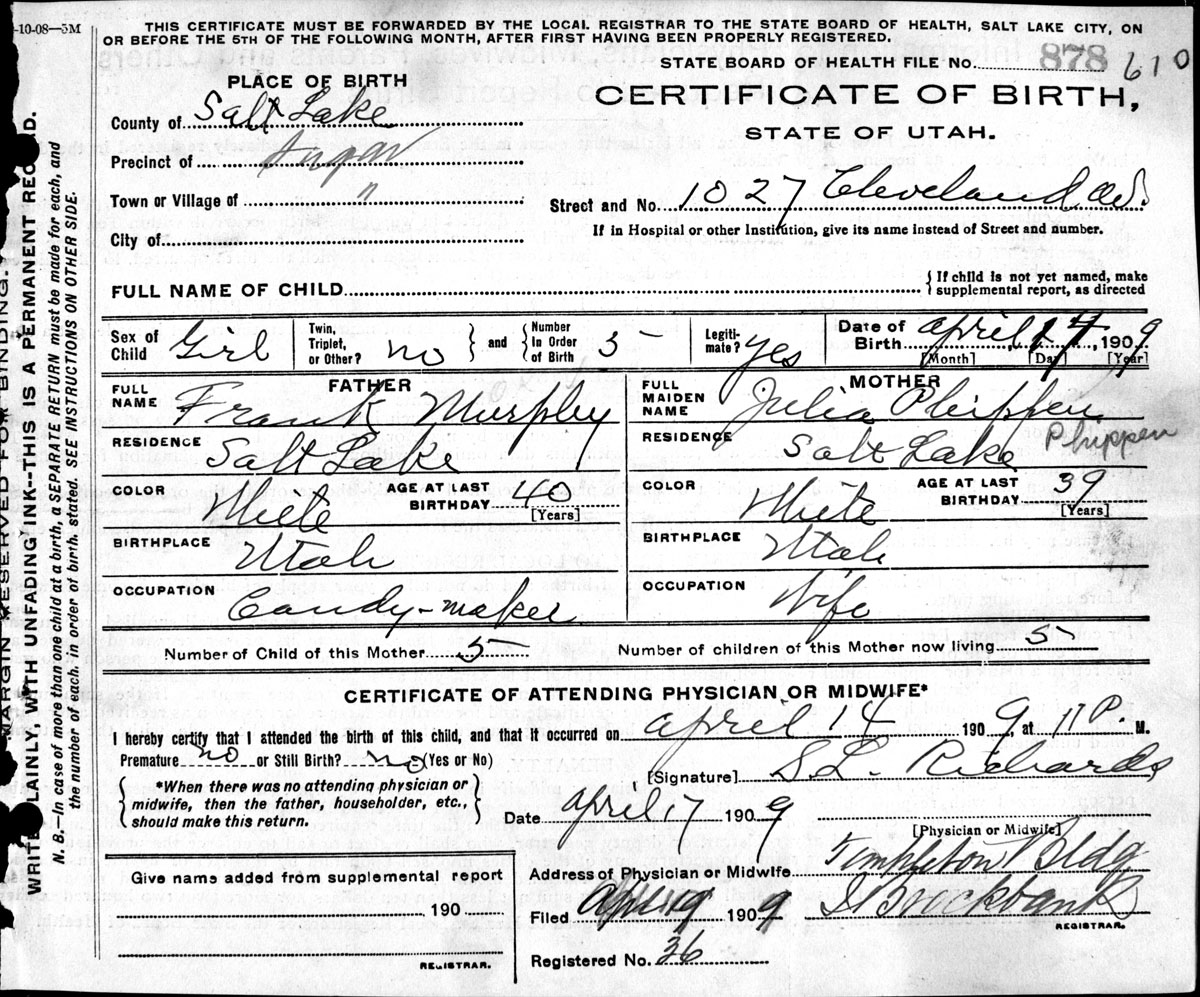 -10-08—5M
THIS CERTIFICATE MUST BE FORWARDED BY THE LOCAL REGISTRAR TO THE STATE BOARD OF HEALTH, SALT LAKE CITY, ON
OR BEFORE THE 5TH OF THE FOLLOWING MONTH, AFTER FIRST HAVING BEEN PROPERLY REGISTERED.
STATE BOARD OF HEALTH FILE No. 878 610
PLACE OF BIRTH
CERTIFICATE OF BIRTH,
STATE OF UTAH.
County of Salt Lake
Precinct of Sugar
Town or Village of "
Street and No. 1027 Cleveland Av.
City of
If in Hospital or other Institution, give its name instead of Street and number.
FULL NAME OF CHILD
{If child is not yet named, make
supplemental report, as directed
Sex of Child Girl
Twin, Triplet, or Other? no } and { Number In Order of Birth 5
Legiti-mate? yes
Date of Birth April, 14, 1909
[Month] [Day] [Year]
FATHER
FULL NAME Frank Murphy
MOTHER
FULL MAIDEN NAME Julia Phippen
RESIDENCE Salt Lake
RESIDENCE Salt Lake Phippen
COLOR White AGE AT LAST BIRTHDAY 40 [Years]
COLOR White AGE AT LAST BIRTHDAY 39 [Years]
BIRTHPLACE Utah
BIRTHPLACE Utah
OCCUPATION Candy-maker
OCCUPATION Wife
Number of Child of this Mother 5 Number of children of this Mother now living 5
CERTIFICATE OF ATTENDING PHYSICIAN OR MIDWIFE*
I hereby certify that I attended the birth of this child, and that it occurred on April 14 1909, at 11 P. M.
Premature no or Still Birth? no (Yes or No)
[Signature] S.L. Richards
{*When there was no attending physician or
midwife, then the father, householder, etc.,
should make this return.}
Date April 17 1909
[Physician or Midwife]
Address of Physician or Midwife Templeton Bldg
Give name added from supplemental report
190
Filed 1909 Brockbank
REGISTRAR.
Registered No. 36
REGISTRAR.
MARGIN RESERVED FOR BINDING.
WRITE PLAINLY, WITH UNFADING INK--THIS IS A PERMANENT RECORD.
N. B.—In case of more than one child at a birth, a SEPARATE RETURN must be made for each, and
the number of each, in order of birth, stated. SEE INSTRUCTIONS ON OTHER SIDE.